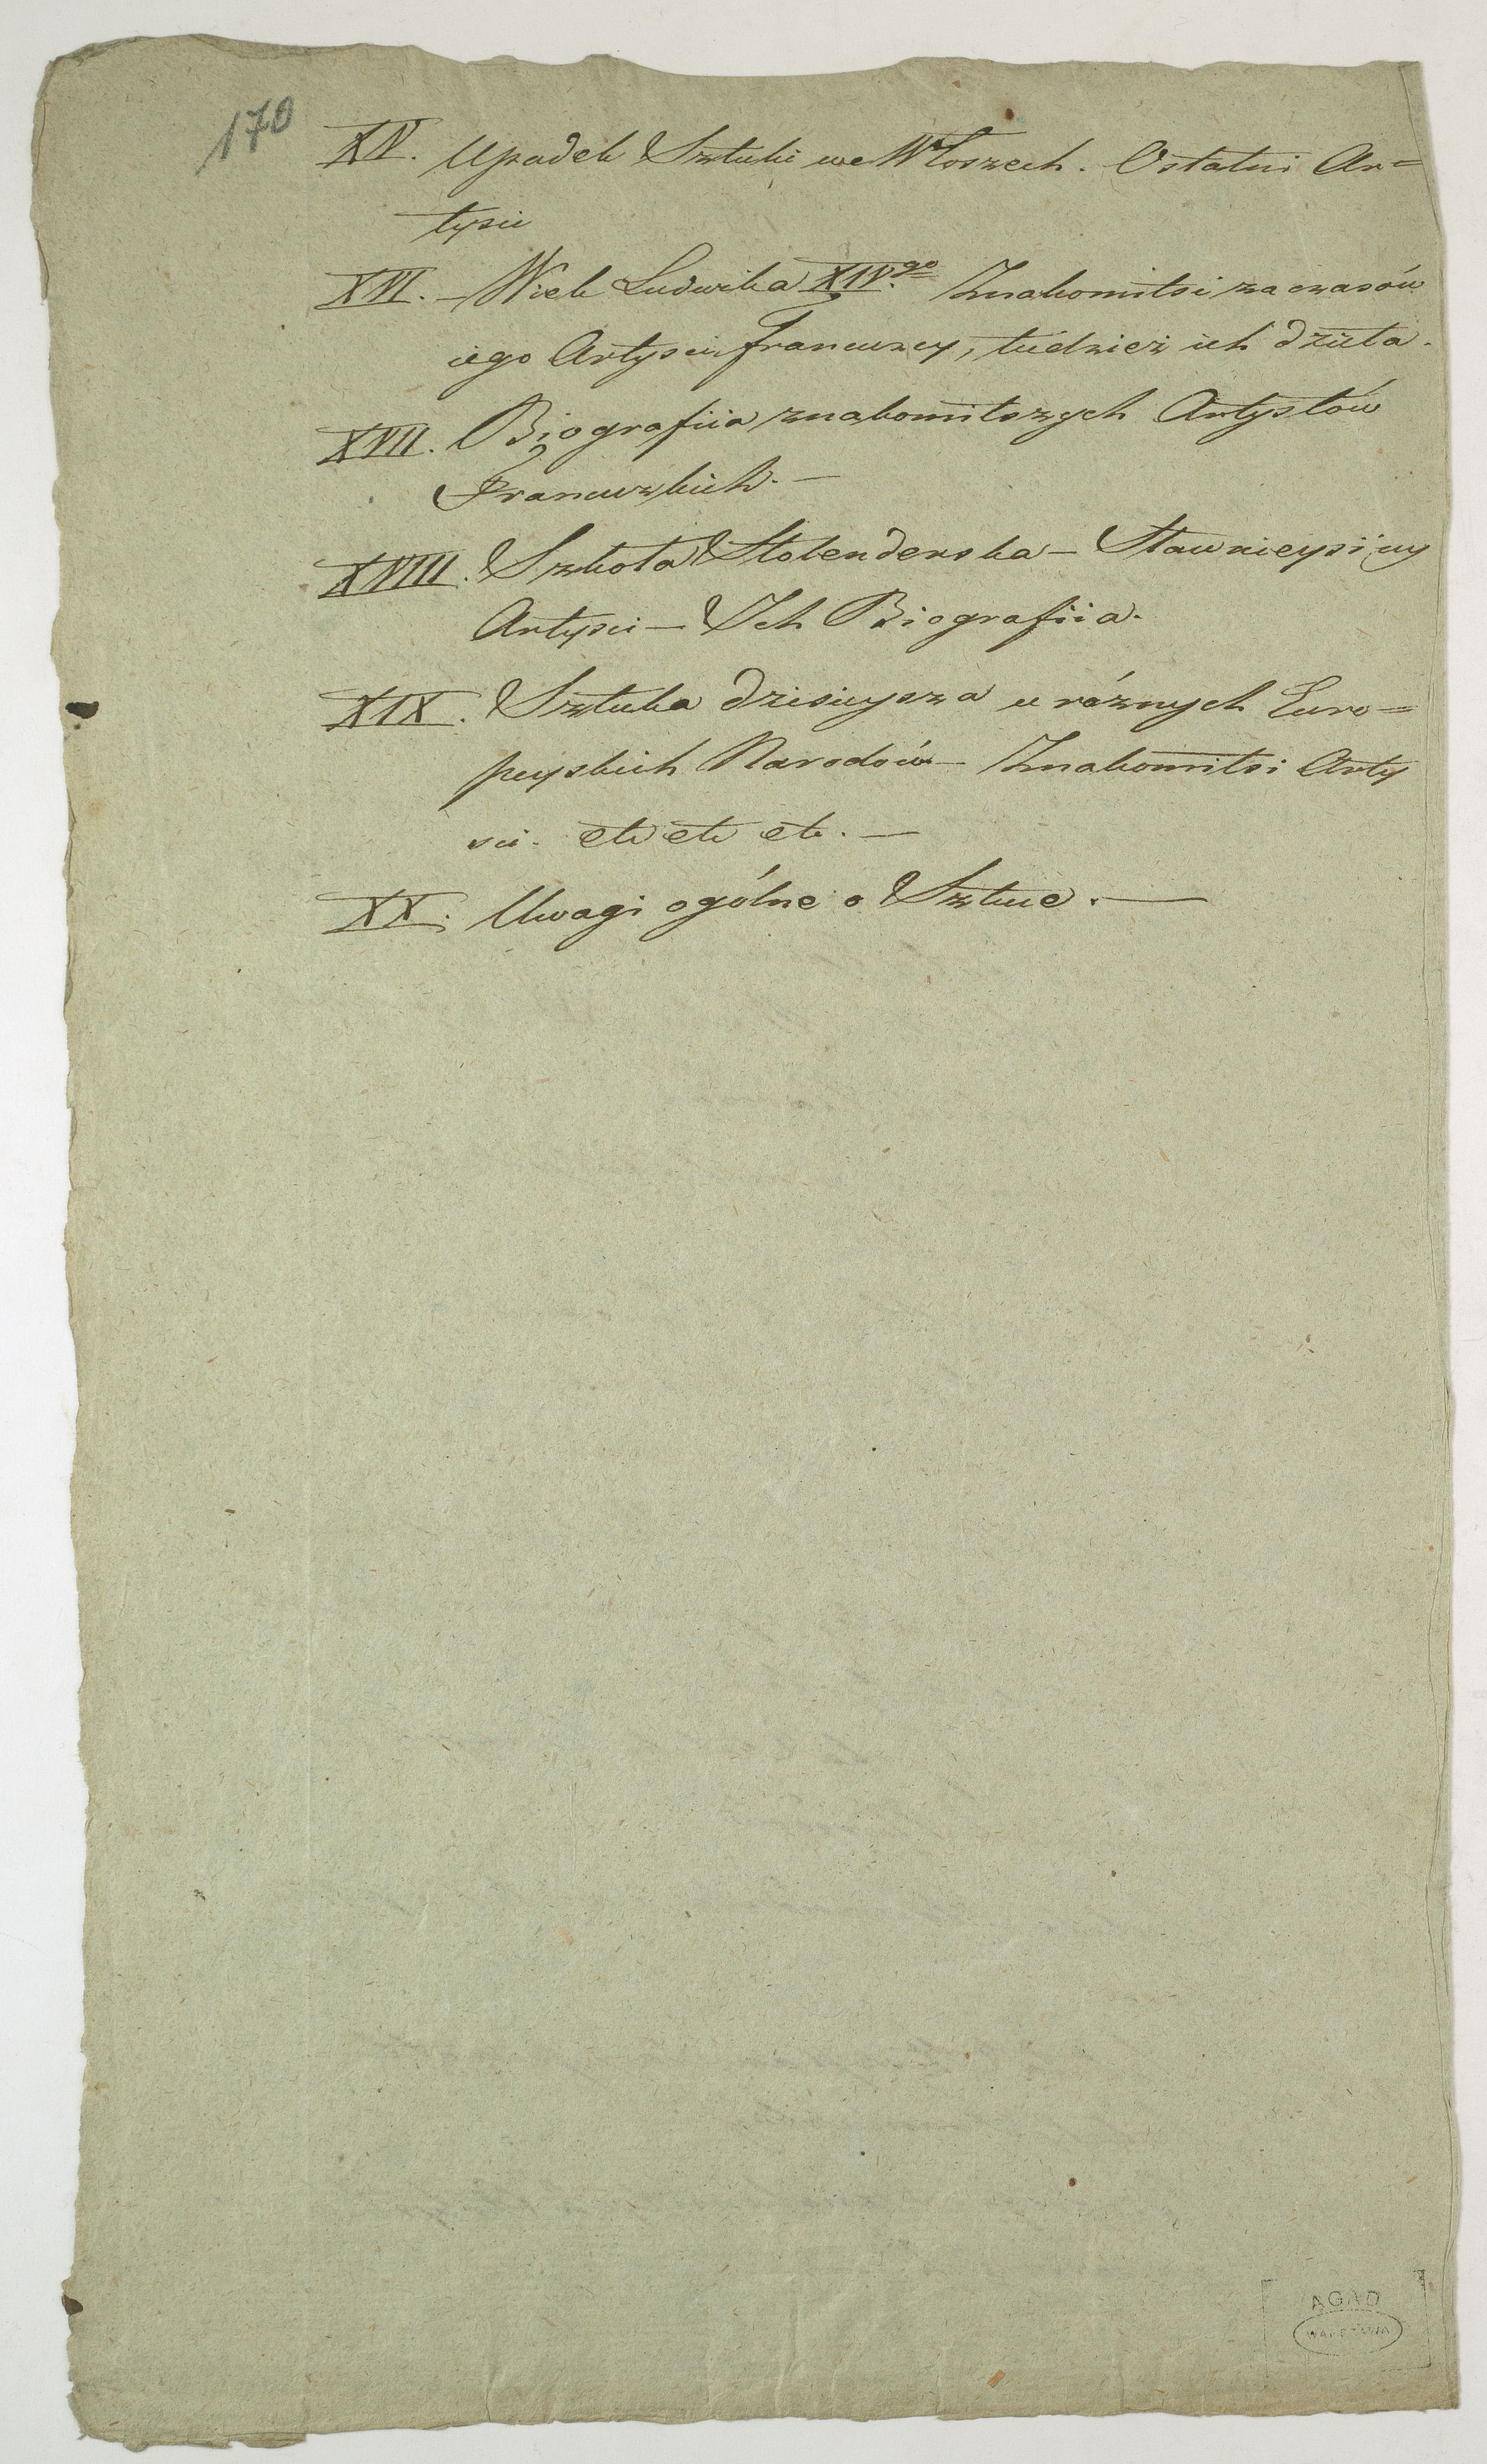 170
XV. Upadek Sztuki we Włoszech. Ostatni Ar=
tysci
XVI. – Wiek Ludwika XIV.go Znakomitsi za czasów
iego Artysci francuzcy, tudzież ich dzieła.
XVII. Biografiia znakomitszych Artystów
Francuzkich. –
XVIII. Szkoła Hollenderska – Sławnieysi
Artysci – Ich Biografiia.
XIX. Sztuka dzisieysza u różnych Euro=
peyskich Narodów – Znakomitsi Arty
sci. etc etc etc. –
XX. Uwagi ogólne o Sztuce. –
AGAD
WARSZAWA